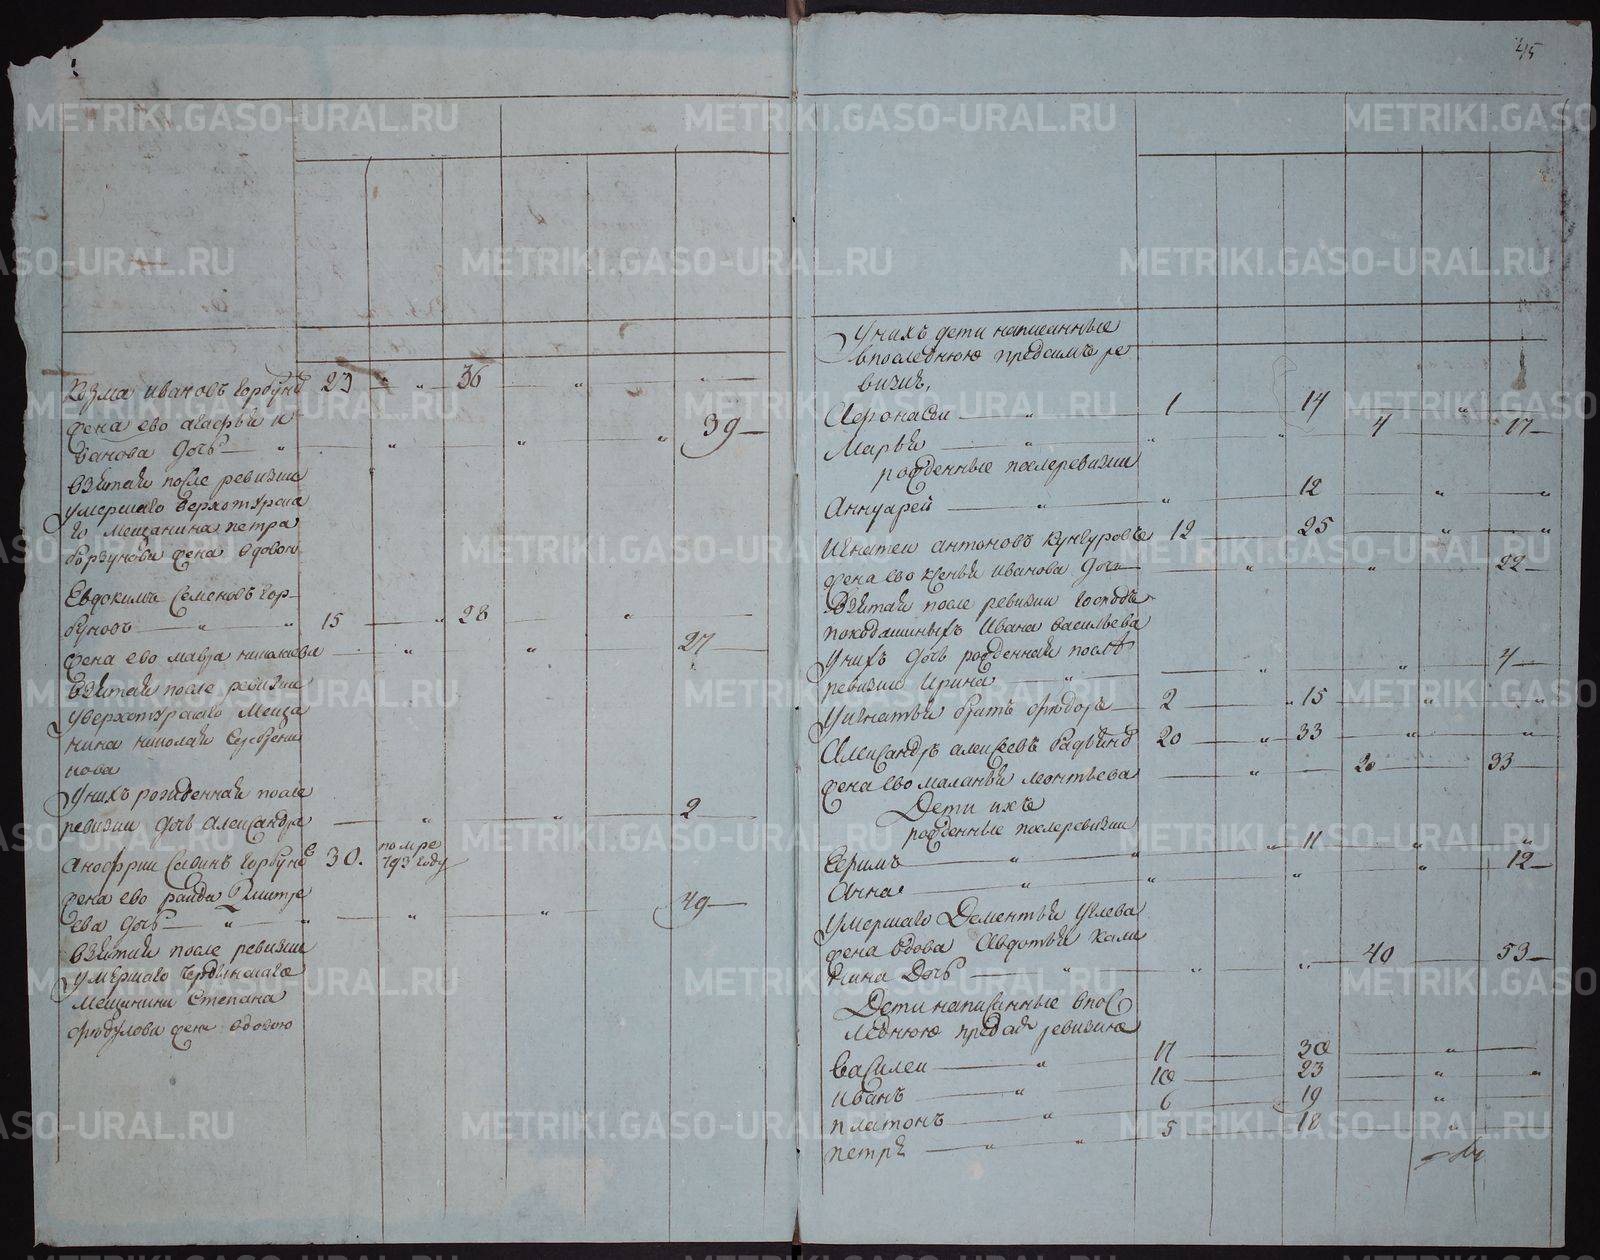 45
Козма Ивановъ Горбуновъ 23 " " 36 " "
жена ево агафья И
ванова Дочь " " " " 39
Взятая после ревизии
умершаго Верхотурска
го мещанина петра
жена вдовою
Евдокимъ Семеновъ Гор
буновъ " " 15 " 28 "
жена ево мавра николаева " " 27
Взятая после ревизии
у верхотурскаго Меща
нина николая
нова
У нихъ рожденная после
ревизии дочь александра " " 2
Анофрии Савинъ Горбуновъ 30. помре
793 году
жена ево раида Дмитре
ева дочь " " " " 49
Взятая после ревизии
умершаго Чердынскаго
мещанина Степана
жена вдовою
У нихъ дети написанные
в последнюю предсимъ ре
визию,
Афонасеи " 1 14 "
Марья " " " 4 17
рожденные послеревизии
Аннуарей " " 12 " "
Игнатеи антоновъ Кунгуровъ 12 25 " "
жена ево Ксенья иванова дочь " " 22
Взятая после ревизии Господъ
походяшиныхъ Ивана васильева
У нихъ дочь рожденная послѣ
ревизии Ирина " " " 4
У игнатья братъ Фѣдоръ 2 " 15 " "
Александръ алексеевъ 20 " 33 " "
жена ево маланья леонтьева " 20 33
Дети ихъ
рожденные послеревизии
Ефимъ " " " 11 " "
Анна " " " " 12
умершаго Дементья Углева
жена вдова Авдотья Кали
нина Дочь " " " 40 53
Дети написанные впос
леднюю предсей ревизию
Василеи " 17 30 "
Иванъ " 10 23 " "
платонъ " 6 19 "
петръ " " 5 18 "